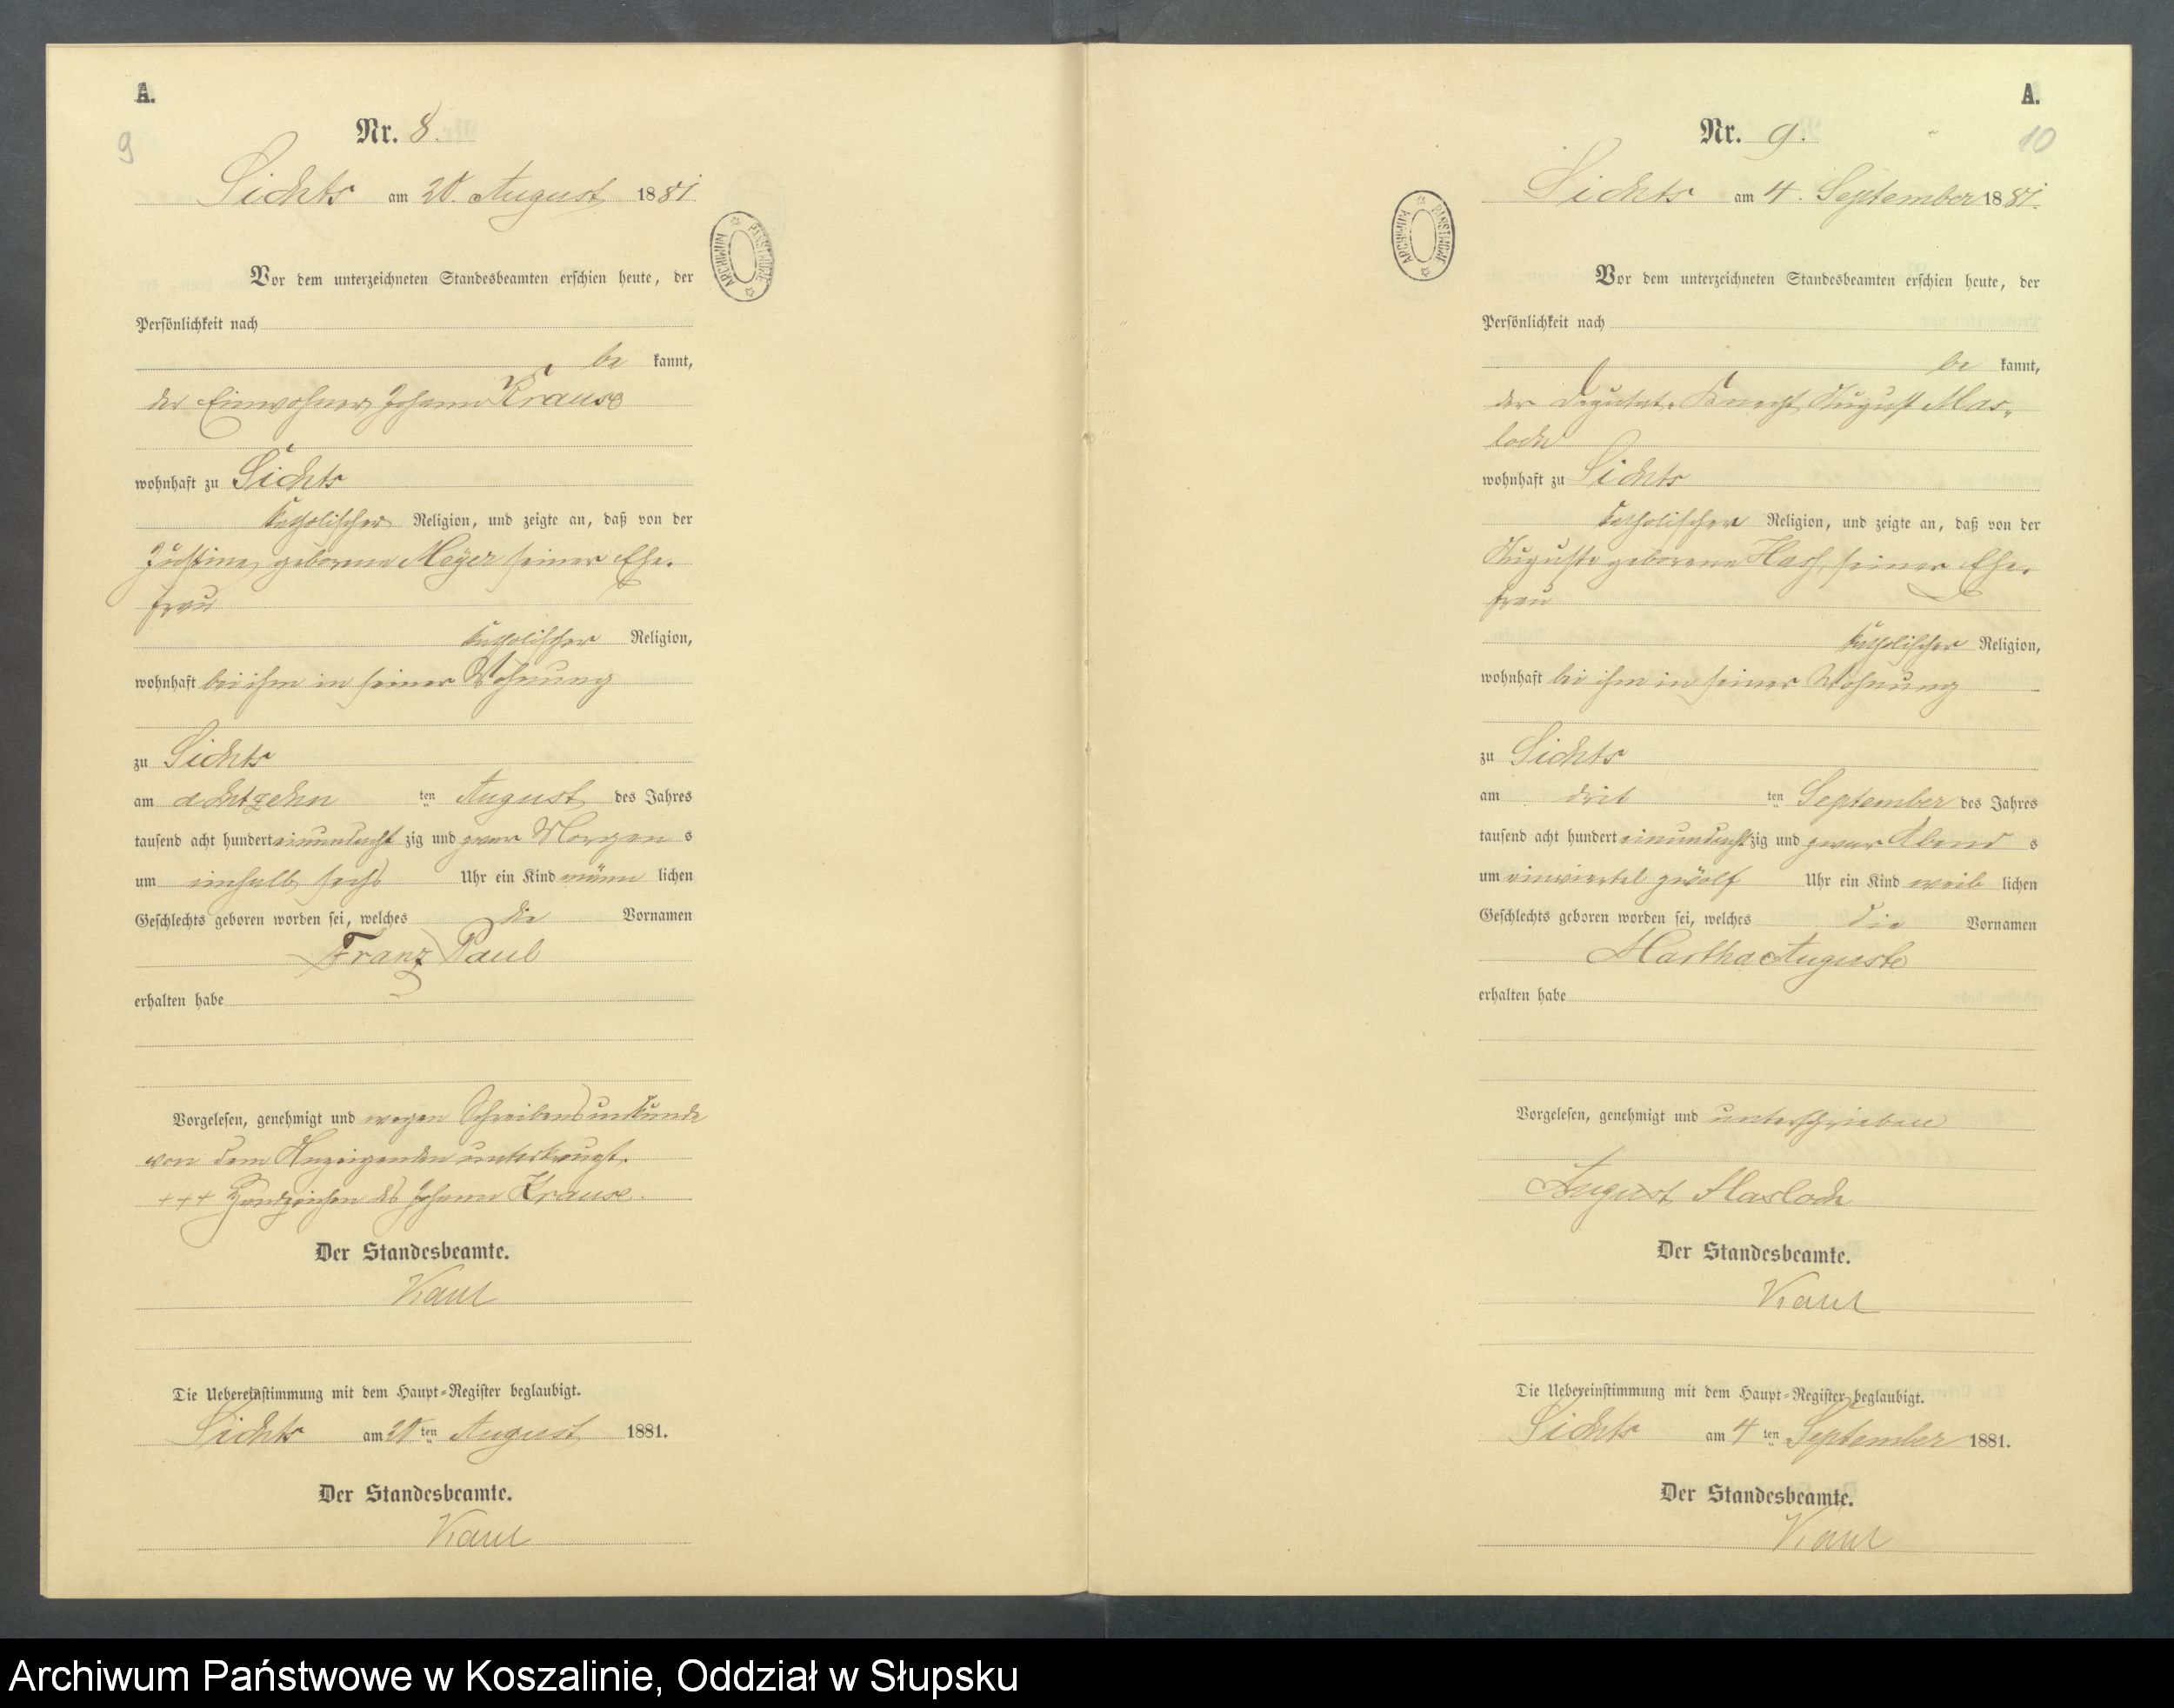 A.
9
Nr. 8.
Sichts am 20. August 1881.
ARCHIWUM PAŃSTWOWE
Vor dem unterzeichneten Standesbeamten erschien heute, der
Persönlichkeit nach
be kannt,
der Einwohner Johann Krause
wohnhaft zu Sichts
katholischer Religion, und zeigte an, daß von der
Justine, geborene Meyer seiner Ehe-
frau
katholischer Religion,
wohnhaft bei ihm in seiner Wohnung
zu Sichts
am achtzehn ten August des Jahres
tausend acht hundert einundacht zig und zwar Morgen s
um einhalb sechs Uhr ein Kind männ lichen
Geschlechts geboren worden sei, welches die Vornamen
Franz Paul
erhalten habe
Vorgelesen, genehmigt und wegen Schreibensunkunde
von dem Anzeigenden unterkreuzt.
+++ Handzeichen des Johann Krause.
Der Standesbeamte.
Die Uebereinstimmung mit dem Haupt-Register beglaubigt.
Sichts am 20 ten August 1881.
Der Standesbeamte.
A.
10
Nr. 9.
Sichts am 4. September 1881.
ARCHIWUM PAŃSTWOWE
Vor dem unterzeichneten Standesbeamten erschien heute, der
Persönlichkeit nach
be kannt,
der Deputat-Knecht August Mas-
loch
wohnhaft zu Sichts
katholischer Religion, und zeigte an, daß von der
Auguste geborene Hass, seiner Ehe-
frau
katholischer Religion,
wohnhaft bei ihm in seiner Wohnung
zu Sichts
am drit ten September des Jahres
tausend acht hundert einundacht zig und zwar Abend s
um einviertel zwölf Uhr ein Kind weib lichen
Geschlechts geboren worden sei, welches die Vornamen
Martha Auguste
erhalten habe
Vorgelesen, genehmigt und unterschrieben
August Masloch
Der Standesbeamte.
Die Uebereinstimmung mit dem Haupt-Register beglaubigt.
Sichts am 4 ten September 1881.
Der Standesbeamte.
Archiwum Państwowe w Koszalinie, Oddział w Słupsku